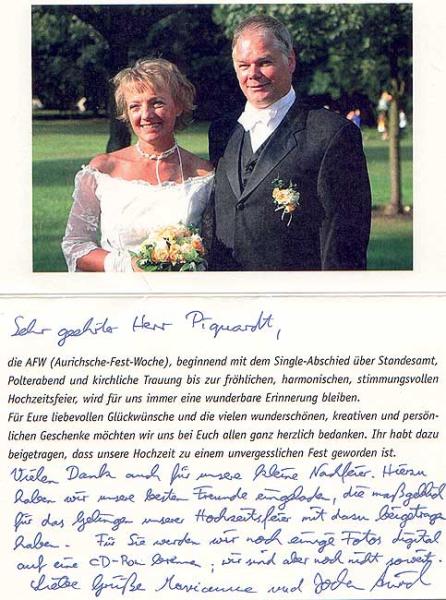 Sehr geehrter Herr Piquardt,
die AFW (Aurichsche-Fest-Woche), beginnend mit dem Single-Abschied über Standesamt,
Polterabend und kirchliche Trauung bis zur fröhlichen, harmonischen, stimmungsvollen
Hochzeitsfeier, wird für uns immer eine wunderbare Erinnerung bleiben.
Für Eure liebevollen Glückwünsche und die vielen wunderschönen, kreativen und persön-
lichen Geschenke möchten wir uns bei Euch allen ganz herzlich bedanken. Ihr habt dazu
beigetragen, dass unsere Hochzeit zu einem unvergesslichen Fest geworden ist.
Vielen Dank auch für unsere kleine Nachfeier. Hierzu
haben wir unsere besten Freunde eingeladen, die maßgeblich
für das Gelingen unserer Hochzeitsfeier mit dazu beigetragen
haben. Für Sie werden wir noch einige Fotos digital
auf eine CD-Rom brennen, wir sind aber noch nicht soweit.
Liebe Grüße Marianne und